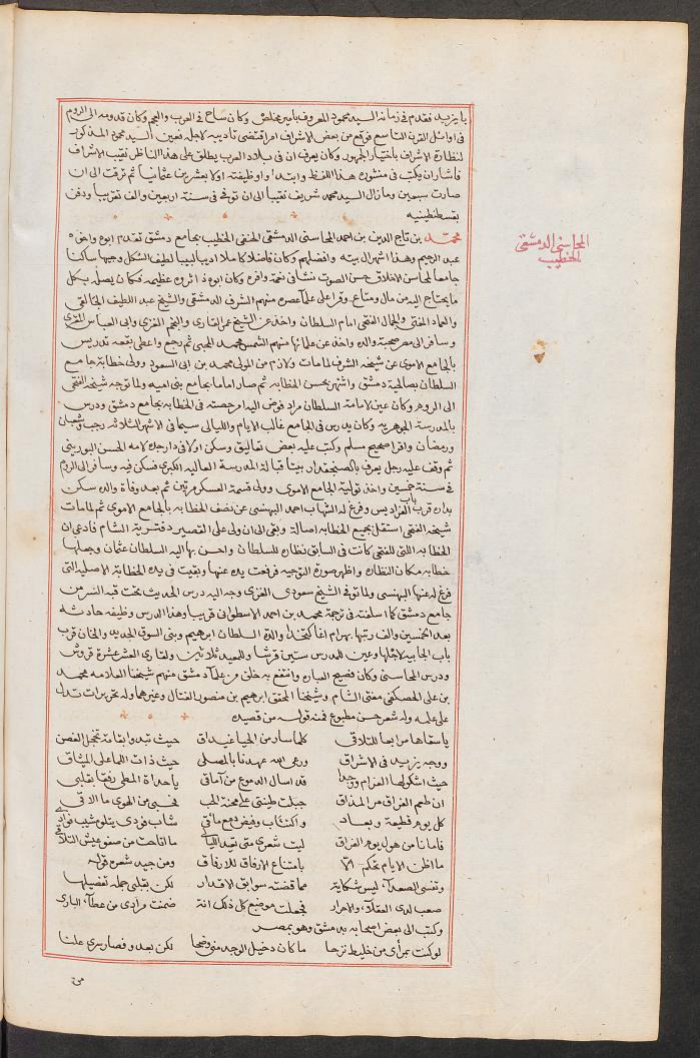 بايزيد فقدم في زمانه السيد محمود المعروف بامير مخلص وكان ساح في العرب والعجم وكان قدومه الى الروم
في اوائل القرن التاسع فوقع من بعض الاشراف امر اقتضى تاديبه لاجله فعين السيد محمود المذكور
لنظارة الاشراف باختيار الجمهور وكان يعرف ان في بلاد العرب يطلق على هذا الناظر نقيب الاشراف
فاشار ان يكتب في منشوره هذا اللفظ وابتدا وظيفته اولا بعشرين عثمانيا ثم ترقت الى ان
صارت سبعين وما زال السيد محمد شريف نقيبا الى ان توفي في سنة اربعين والف تقريبا ودفن
بقسطنطينيه
محمد بن تاج الدين بن احمد المحاسني الدمشقي الحنفي الخطيب بجامع دمشق تقدم ابوه واخوه
عبد الرحيم وهذا اشهر ال بيته وافضلهم وكان فاضلا كاملا اديبا لبيبا لطيف الشكل وجيها ساكنا
جامعا لمحاسن الاخلاق حسن الصوت نشا في نعمة وافره وكان ابوه ذا ثروه عظيمه فكان يصله بكل
ما يحتاج اليه من مال ومتاع وقرا على علما عصره منهم الشرف الدمشقي والشيخ عبد اللطيف الجالقي
والعماد المفتي والجمال الفتحي امام السلطان واخذ عن الشيخ عمر القاري والنجم الغزي وابي العباس المقري
وسافر الى مصر صحبة والده واخذ عن علمائها منهم الشمس محمد المحبي ثم رجع واعطى بقعة تدريس
بالجامع الاموي عن شيخه الشرف لما مات ولازم من المولى محمد بن ابي السعود وولى خطابة جامع
السلطان بصالحية دمشق واشتهر بحسن الخطابه ثم صار اماما بجامع بني اميه ولما توجه شيخه الفتحي
الى الروم وكان عين لامامة السلطان مراد فوض اليه امر حصته في الخطابه بجامع دمشق ودرس
بالمدرسة الجوهريه وكان يدرس في الجامع غالب الايام والليالي سيما في الاشهر الثلاثه رجب وشعبان
ورمضان واقرا صحيح مسلم وكتب عليه بعض تعاليق وسكن اولا في دار جده لامه الحسن البوريني
ثم وقف عليه رجل يعرف بالصنجقدار بيتا قبالة المدرسة العادليه الكبرى فسكن فيه وسافر الى الروم
في سنة خمسين واخذ تولية الجامع الاموي وولى قسمة العسكر مرتين ثم بعد وفاة والده سكن
بداره قرب باب الفراديس وفرغ له الشهاب احمد البهنسي عن نصف الخطابه بالجامع الاموي ثم لما مات
شيخه الفتحي استقل بجميع الخطابه اصالة وبقي الى ان ولى على القصير دفترية الشام فادعى ان
الخطابه التي للفتحي كانت في السابق نظاره للسلطان واحسن بها اليه السلطان عثمان وجعلها
خطابه مكان النظاره واظهر صورة التوجيه فرفعت يده عنها وبقيت في يده الخطابة الاصليه التي
فرغ له عنها البهنسي ولما توفي الشيخ سعودي الغزي وجه اليه درس الحديث تحت قبة النسر من
جامع دمشق كما اسلفته في ترجمة محمد بن احمد الاسطواني قريبا وهذا الدرس وظيفه حادثه
بعد الخمسين والف رتبها بهرام اغا كتخدا والدة السلطان ابرهيم وبنى السوق الجديد والخان قرب
باب الجابيه لاجلها وعين للمدرس ستين قرشا وللمعيد ثلاثين ولقاري العشر عشرة قروش
ودرس المحاسني وكان فصيح العباره وانتفع به خلق من علما دمشق منهم شيخنا العلامه محمد
بن علي الحصكفي مفتي الشام وشيخنا المحقق ابرهيم بن منصور الفتال وغيرهما وله تحريرات تدل
على علمه وله شعر حسن مطبوع فمنه قوله من قصيده
يا سقاها مرابعا للتلاق كلما سار من الحيا غيداق حيث تبدو ابقامة تخجل الغصن
ووجه يزيد في الاشراق ورعى الله عهدنا بالمصلى حيث ذات اللما على الميثاق
حيث اشكو لها الغرام ووجدا قد اسال الدموع من آماقي يا حداة المطي رفقا بقلبي
ان طعم الفراق مر المذاق جبلت طينتي على محنة الحب فحسبي من الهوى ما الاقي
كل يوم قطيعة وبعاد واكتئاب وفيض دمع مآقي شاب فودي يتلوه شيب فوادي
فامانا من هول يوم الفراق ليت شعري متى تفيد الليالي ما اتاحت من صفو عيش التلاقي
ما اظن الايام تحكم الا بامتناع الارفاق للارفاق ومن جيد شعره قوله
وتنفسي الصعدآء ليس شكاية مما قضته سوابق الاقدار لكن بقلبي جملة تفصيلها
صعب لدى العقلاء والاحرار فجعلت موضع كل ذلك انة ضمنت مرادي من عطآء الباري
وكتب الى بعض اصحابه بدمشق وهو بمصر
لو كنت بمرأى من خليط نزحا ما كان دخيل الوجد مني وضحا لكن بعدو فصار سري علنا
المحاسني الدمشقي
الخطيب